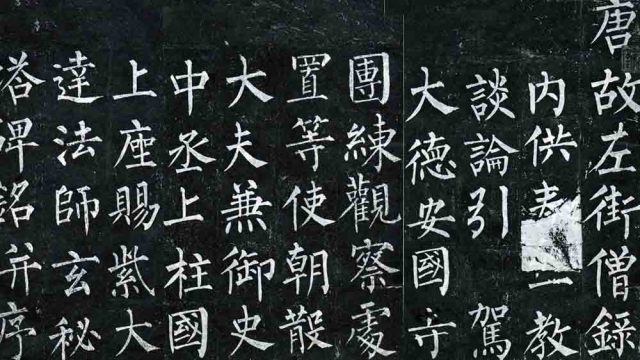 唐故左街僧錄
内供奉教
談論引駕
大德安國寺
團練觀察處
置等使朝散
大夫兼御史
中丞上柱國
上座賜紫大
達法師玄秘
塔碑銘并序